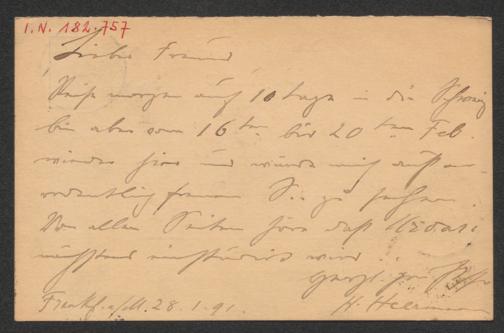 I.N. 182.757
Lieber Freund
Reise morgen auf 10 Tage in die Schweiz
bin aber vom 16ten bis 20ten Feb.
wieder hier und würde mich außer-
ordentlich freuen Sie zu sehen.
Von allen Seiten höre daß
nächstens einstudirt wird.
Herzl.
Frankf. a/M. 28.1.91. H. Heermann